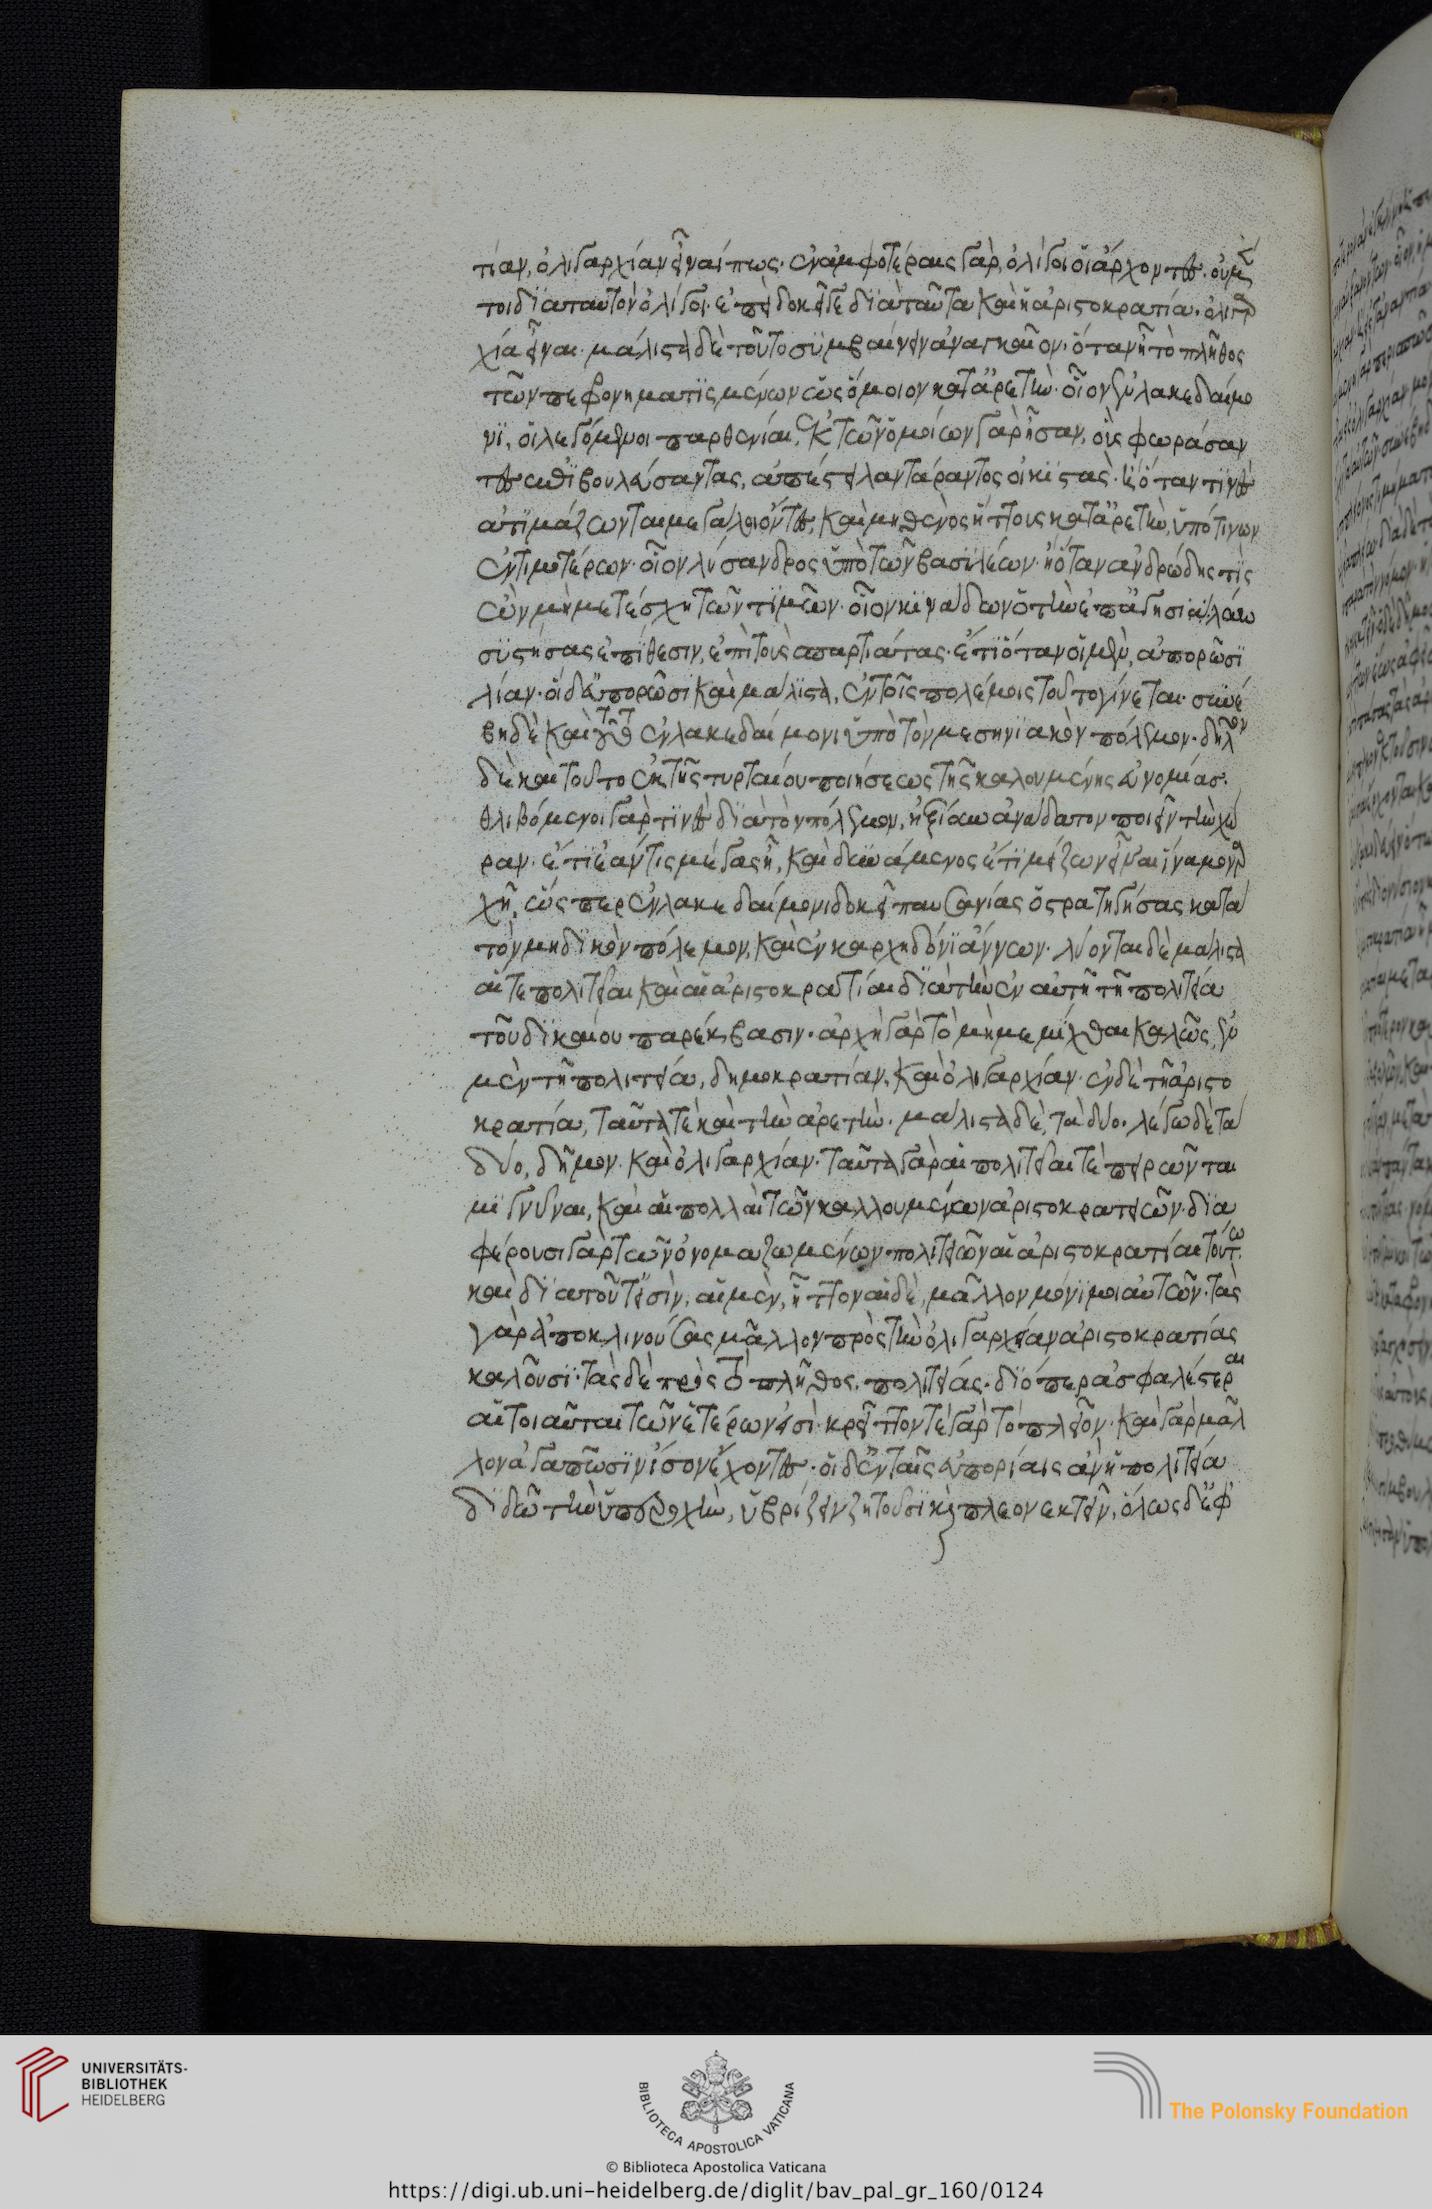 τίαν, ὀλιγαρχίαν εἶναί πως· ἐν ἀμφοτέραις γὰρ, ὀλίγοι οἱ ἄρχοντες· οὐ μέν
τοι διαταυτὸν ὀλίγοι· ἐπεὶ δοκεῖ γε διὰ ταῦτα καὶ ἡ ἀριστοκρατία· ὀλιγαρ
χία εἶναι· μάλιστα δὲ τοῦτο συμβαίνειν ἀναγκαῖον· ὅταν ᾖ τὸ πλῆθος
τῶν πεφρονηματισμένων ὡς ὅμοιον κατ' ἀρετήν· οἷον ἐν λακεδαίμο
νι, οἱ λεγόμενοι παρθενίαι, ἐκ τῶν ὁμοίων γὰρ ἦσαν, οὓς φωράσαν
τες ἐπιβουλεύσαντας, ἀπέστειλαν τάραντος οἰκιστὰς· ἢ ὅταν τινὲς
ἀτιμάζωνται μεγάλοι ὄντες, καὶ μηθενὸς ἥττους κατ' ἀρετὴν, ὑπό τινων
ἐντιμοτέρων· οἷον λύσανδρος ὑπὸ τῶν βασιλέων· ἢ ὅταν ἀνδρώδης τις
ὢν μὴ μετέσχη τῶν τιμῶν· οἷον κινάδων ὁ τὴν ἐπ' ἀγησιλάω
συστήσας ἐπίθεσιν, ἐπὶ τοὺς σπαρτιάτας· ἔτι ὅταν οἱ μὲν, ἀπορῶσι
λίαν· οἱ δ' εὐπορῶσι καὶ μάλιστα, ἐν τοῖς πολέμοις τοῦτο γίνεται· συνέ
βη δὲ καὶ τοῦτο ἐν λακεδαίμονι ὑπὸ τὸν μεσηνιακὸν πόλεμον· δῆλον
δὲ καὶ τοῦτο ἐκ τῆς τυρταίου ποιήσεως τῆς καλουμένης εὐνομίας·
θλιβόμενοι γάρ τινες διὰ τὸν πόλεμον, ἠξίουν ἀνάδαστον ποιεῖν τὴν χώ
ραν· ἔτι ἐάν τις μέγας ᾖ, καὶ δυνάμενος ἔτι μείζων εἶναι ἵνα μοναρ
χῇ, ὥσπερ ἐν λακεδαίμονι δοκεῖ παυσανίας ὁ στρατηγήσας κατὰ
τὸν μηδικὸν πόλεμον, καὶ ἐν καρχηδόνι ἄννων· λύονται δὲ μάλιστα
αἵ τε πολιτεῖαι καὶ αἱ ἀριστοκρατίαι διὰ τὴν ἐν αὐτῇ τῇ πολιτεία
τοῦ δικαίου παρέκβασιν· ἀρχὴ γὰρ τὸ μὴ μεμίχθαι καλῶς, ἐν
μὲν τῇ πολιτεία, δημοκρατίαν, καὶ ὀλιγαρχίαν· ἐν δὲ τῇ ἀριστο
κρατία, ταῦτά τε καὶ τὴν ἀρετὴν· μάλιστα δὲ, τὰ δύο· λέγω δὲ τὰ
δύο, δῆμον· καὶ ὀλιγαρχίαν· ταῦτα γὰρ αἱ πολιτεῖαί τε πειρῶνται
μιγνύναι, καὶ αἱ πολλαὶ τῶν καλλουμένων ἀριστοκρατειῶν· δια
φέρουσι γὰρ τῶν ὀνομαζωμένων πολιτειῶν αἱ ἀριστοκρατείαι τούτω
καὶ διὰ τοῦτ' εἰσὶν, αἱ μὲν, ἧττον αἱ δὲ, μᾶλλον μόνιμοι αὐτῶν· τὰς
γὰρ ἀποκλινούσας μᾶλλον πρὸς τὴν ὀλιγαρχείαν ἀριστοκρατίας
καλοῦσι· τὰς δὲ πρὸς τὸ πλῆθος, πολιτείάς· διόπερ ἀσφαλέστεραι
αἱ τοιαῦται τῶν ἑτέρων εἰσὶ· κρεῖττόν τε γὰρ τὸ πλεῖον· καὶ γὰρ μᾶλ
λον ἀγαπῶσιν ἴσον ἔχοντες· οἱ δ' ἐν ταῖς εὐπορίαις ἂν ἡ πολιτεία
διδῶ τὴν ὑπεροχὴν, ὑβρίζειν ζητοῦσι καὶ πλεονεκτεῖν, ὅλως δ' ἐφ'
UNIVERSITÄTS-
BIBLIOTHEK
HEIDELBERG
BIBLIOTECA APOSTOLICA VATICANA
The Polonsky Foundation
© Biblioteca Apostolica Vaticana
https://digi.ub.uni-heidelberg.de/diglit/bav_pal_gr_160/0124